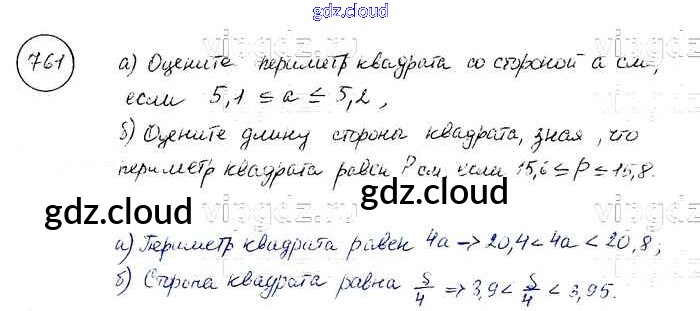 gdz.cloud
761
а) Оцените периметр квадрата со стороной а см,
если 5,1 ≤ a ≤ 5,2,
б) Оцените длину стороны квадрата, зная, что
периметр квадрата равен P см, если 15,6 ≤ p ≤ 15,8.
gdz.cloud
gdz.cloud
а) Периметр квадрата равен 4a → 20,4 < 4a < 20,8;
б) Строна квадрата равна S/4 ⇒ 3,9 < S/4 < 3,95.